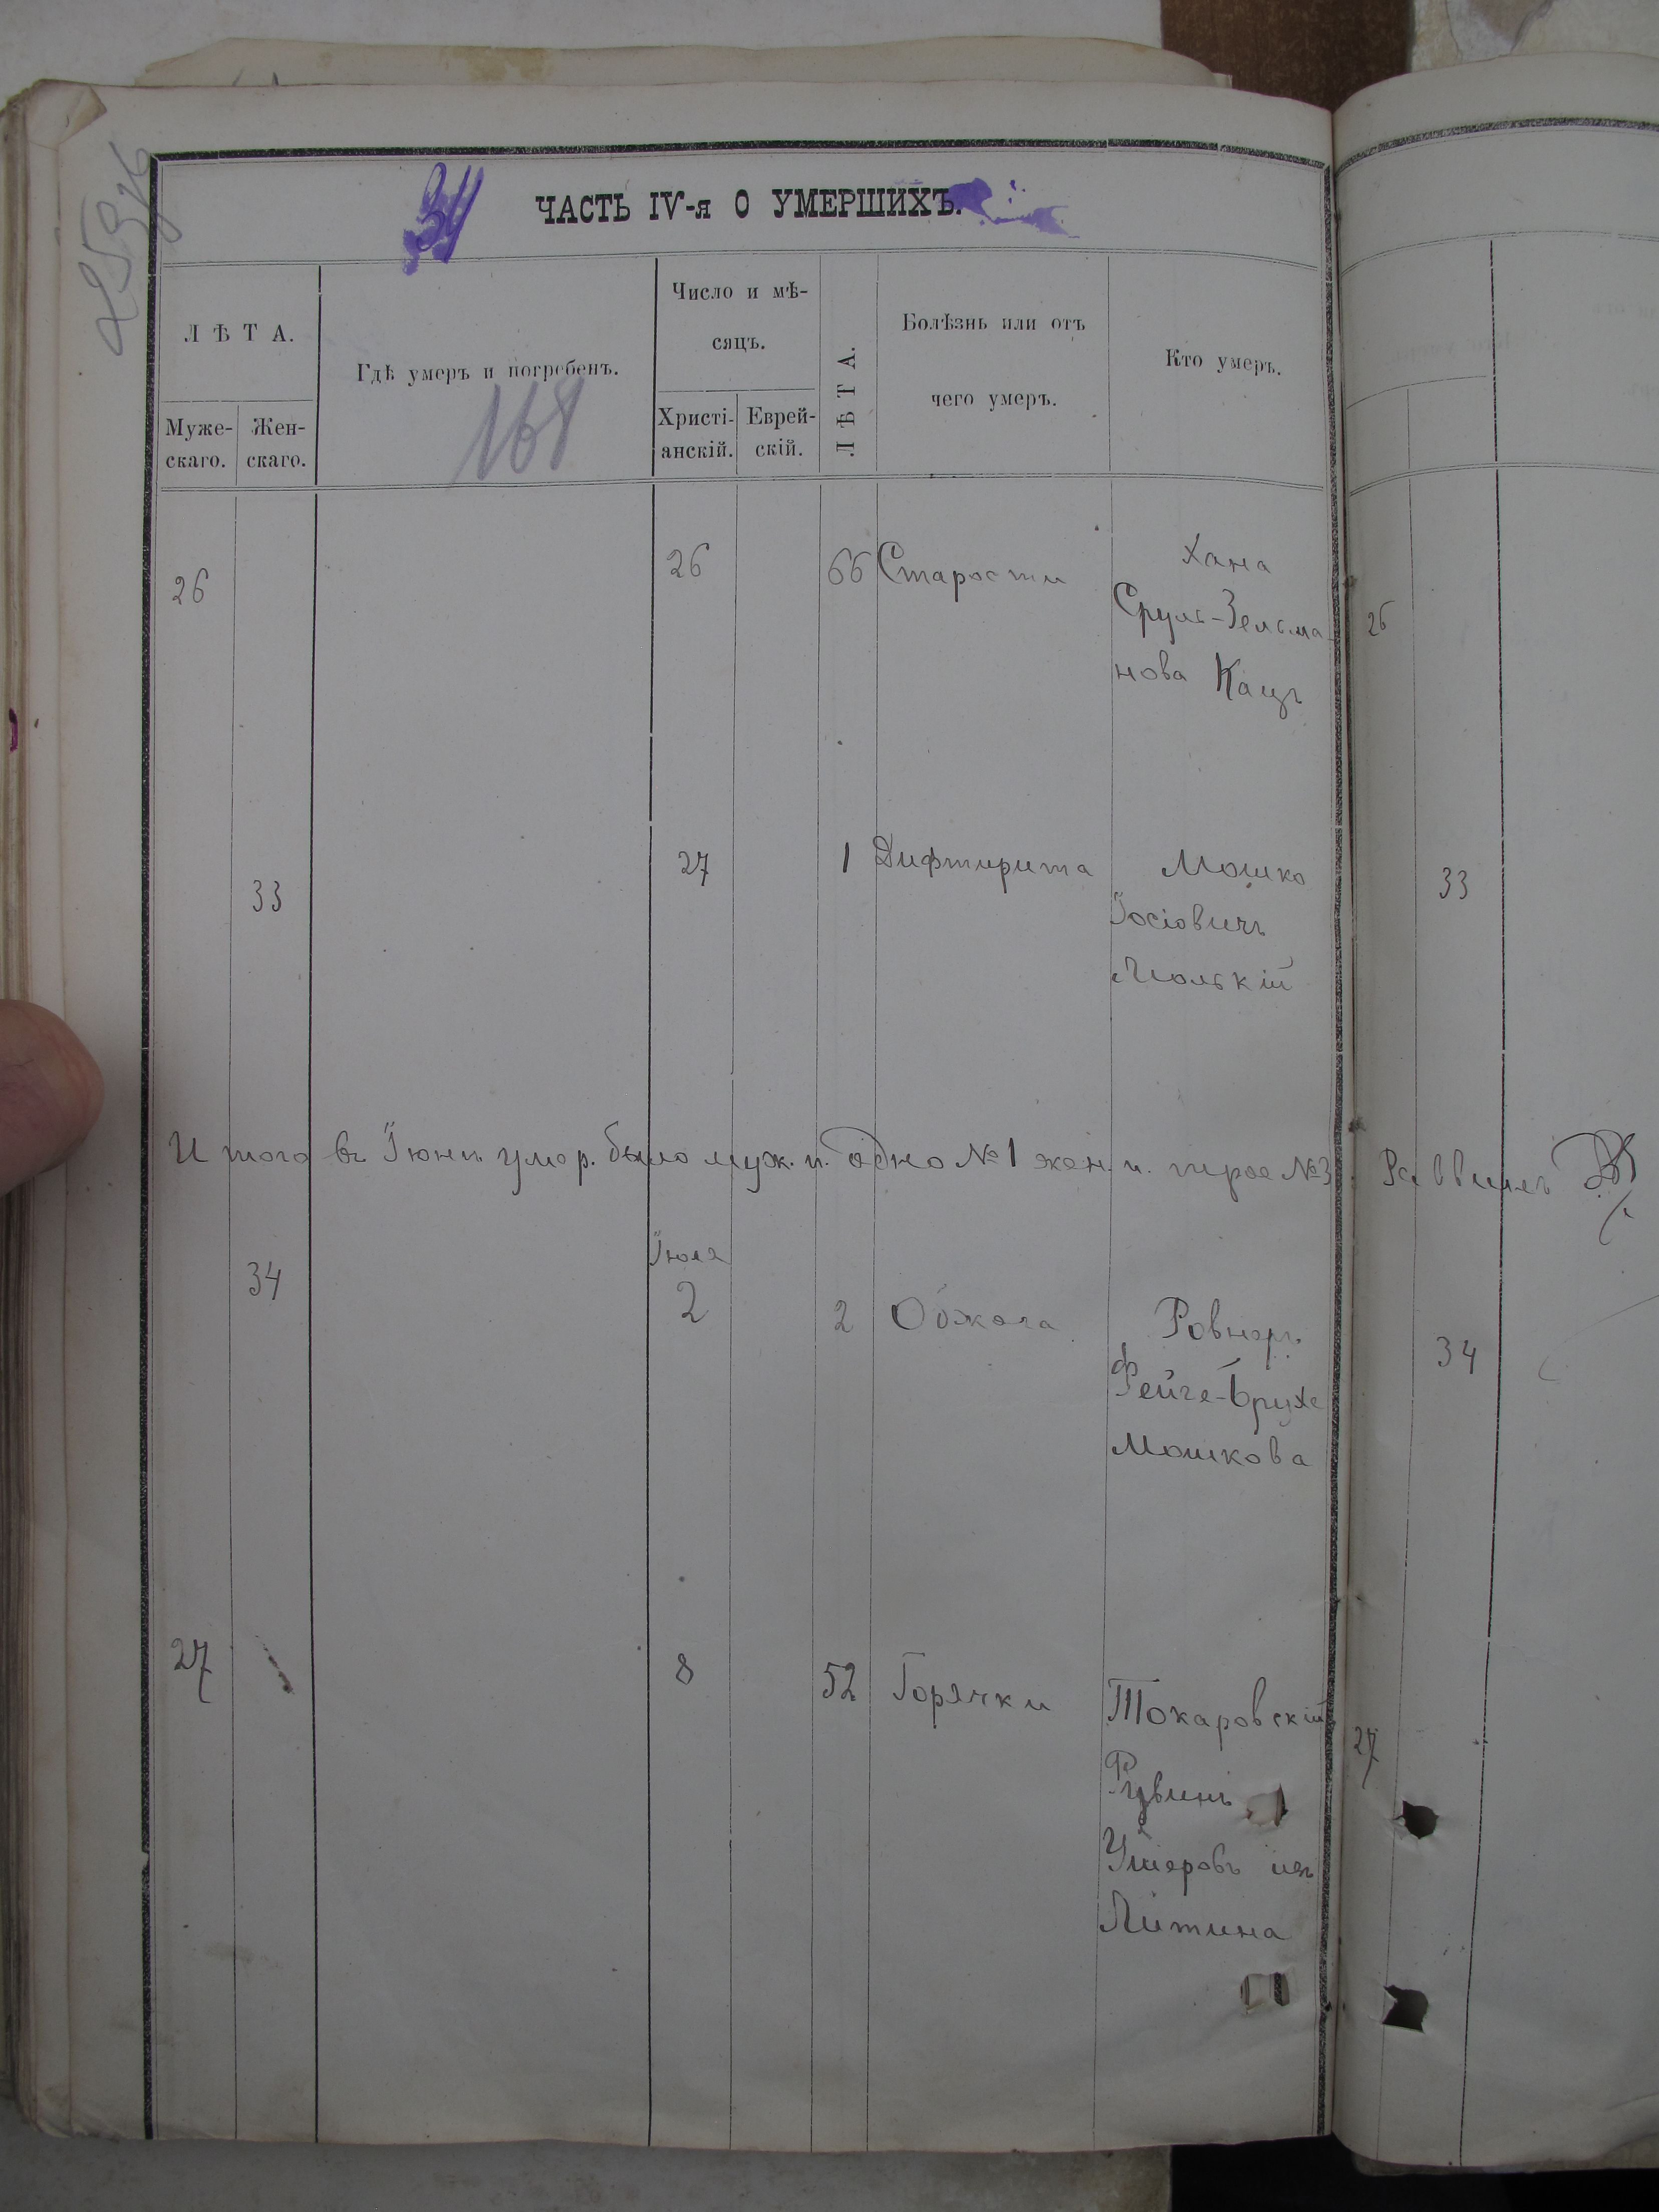 253 об
34
ЧАСТЬ IV-я О УМЕРШИХЪ.
ЛѢТА.
Муже-
скаго.
Жен-
скаго.
Гдѣ умеръ и погребенъ.
168
Число и мѣ-
сяцъ.
Христі-
анскій.
Еврей-
скій.
ЛѢТА.
Болѣзнь или отъ
чего умеръ.
Кто умеръ.
26 26 66 Старости Хана
Сруль-Зельма-
нова Кацъ
26
33 27 1 Дифтирита Мошко
Іосіовичъ
33
Итого въ Іюнѣ умер. было муж. п. одно №1 жен. п. трое №3. Раввинъ
Іюля
34 2 2 Обжога Ровнеръ
Фейге-Брухе
Мошкова
34
27 8 52 Горячки Токаровскій
Рувинъ
Ушеровъ изъ
Литина
27